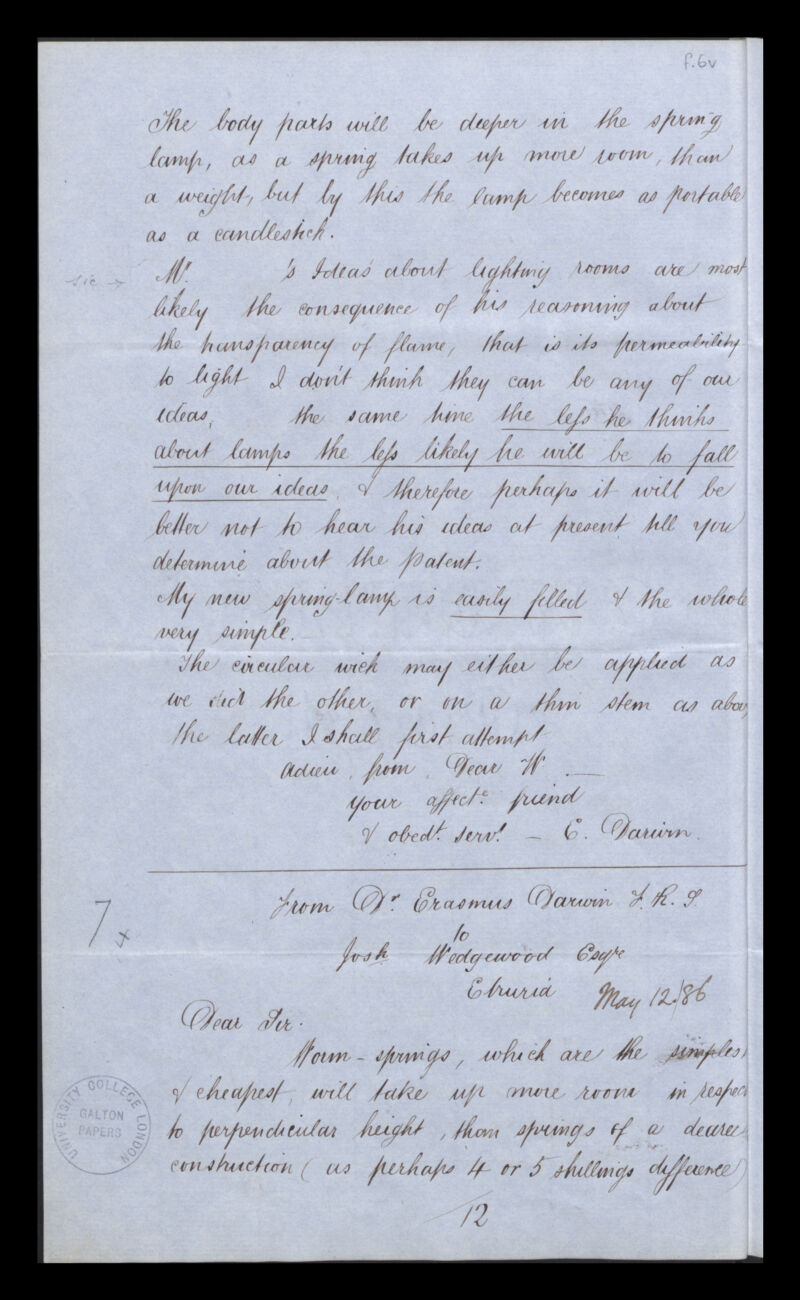 f.6v
The body parts will be deeper in the spring
lamp, as a spring takes up more room, than
a weight, but by this the lamp becomes as portable
as a candlestick.
sic → Mr. 's Ideas about lighting rooms are most
likely the consequence of his reasoning about
the transparency of flame, that is its permeability
to light I don't think they can be any of our
ideas, the same time the less he thinks
about lamps the less likely he will be to fall
upon our ideas, & therefore perhaps it will be
better not to hear his ideas at present till you
determine about the patent.
My new spring-lamp is easily filled & the whole
very simple.
The circular wick may either be applied as
we did the other, or on a thin stem as abov
the latter I shall first attempt
Adieu, from, Dear W —
your affect.e friend
& obedt. servt. — E. Darwin.
From Dr. Erasmus Darwin F.R.S
7
4
to
Josh Wedgewood Esqre
Etruria May 12./86
Dear Sir.
Worm-springs, which are the simples
& cheapest, will take up more room in respec
to perpendicular height, than springs of a dearer
construction (as perhaps 4 or 5 shillings difference)
12
UNIVERSITY COLLEGE LONDON
GALTON
PAPERS